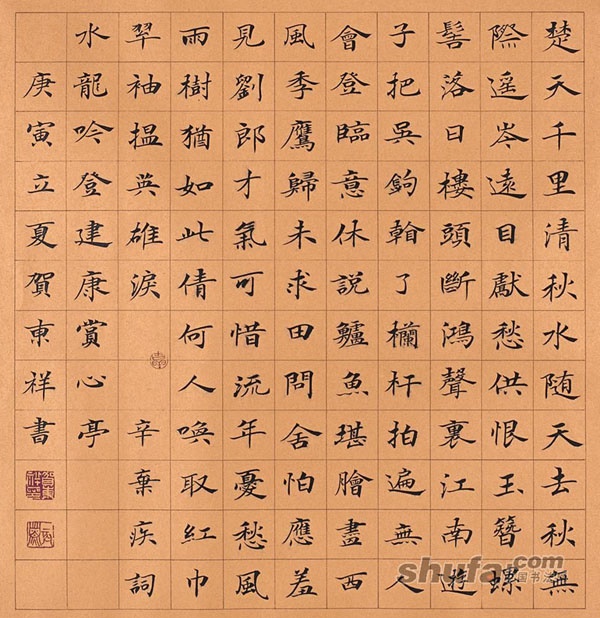 楚天千里清秋水随天去秋無
際遥岑遠目獻愁供恨玉簪螺
髻落日樓頭斷鴻聲裏江南遊
子把吳鉤看了欄杆拍遍無人
會登臨意休說鱸魚堪膾盡西
風季鷹歸未求田問舍怕應羞
見劉郎才氣可惜流年憂愁風
雨樹猶如此倩何人喚取紅巾
翠袖揾英雄淚 辛棄疾詞
水龍吟登建康賞心亭
庚寅立夏賀東祥書
shufa.com